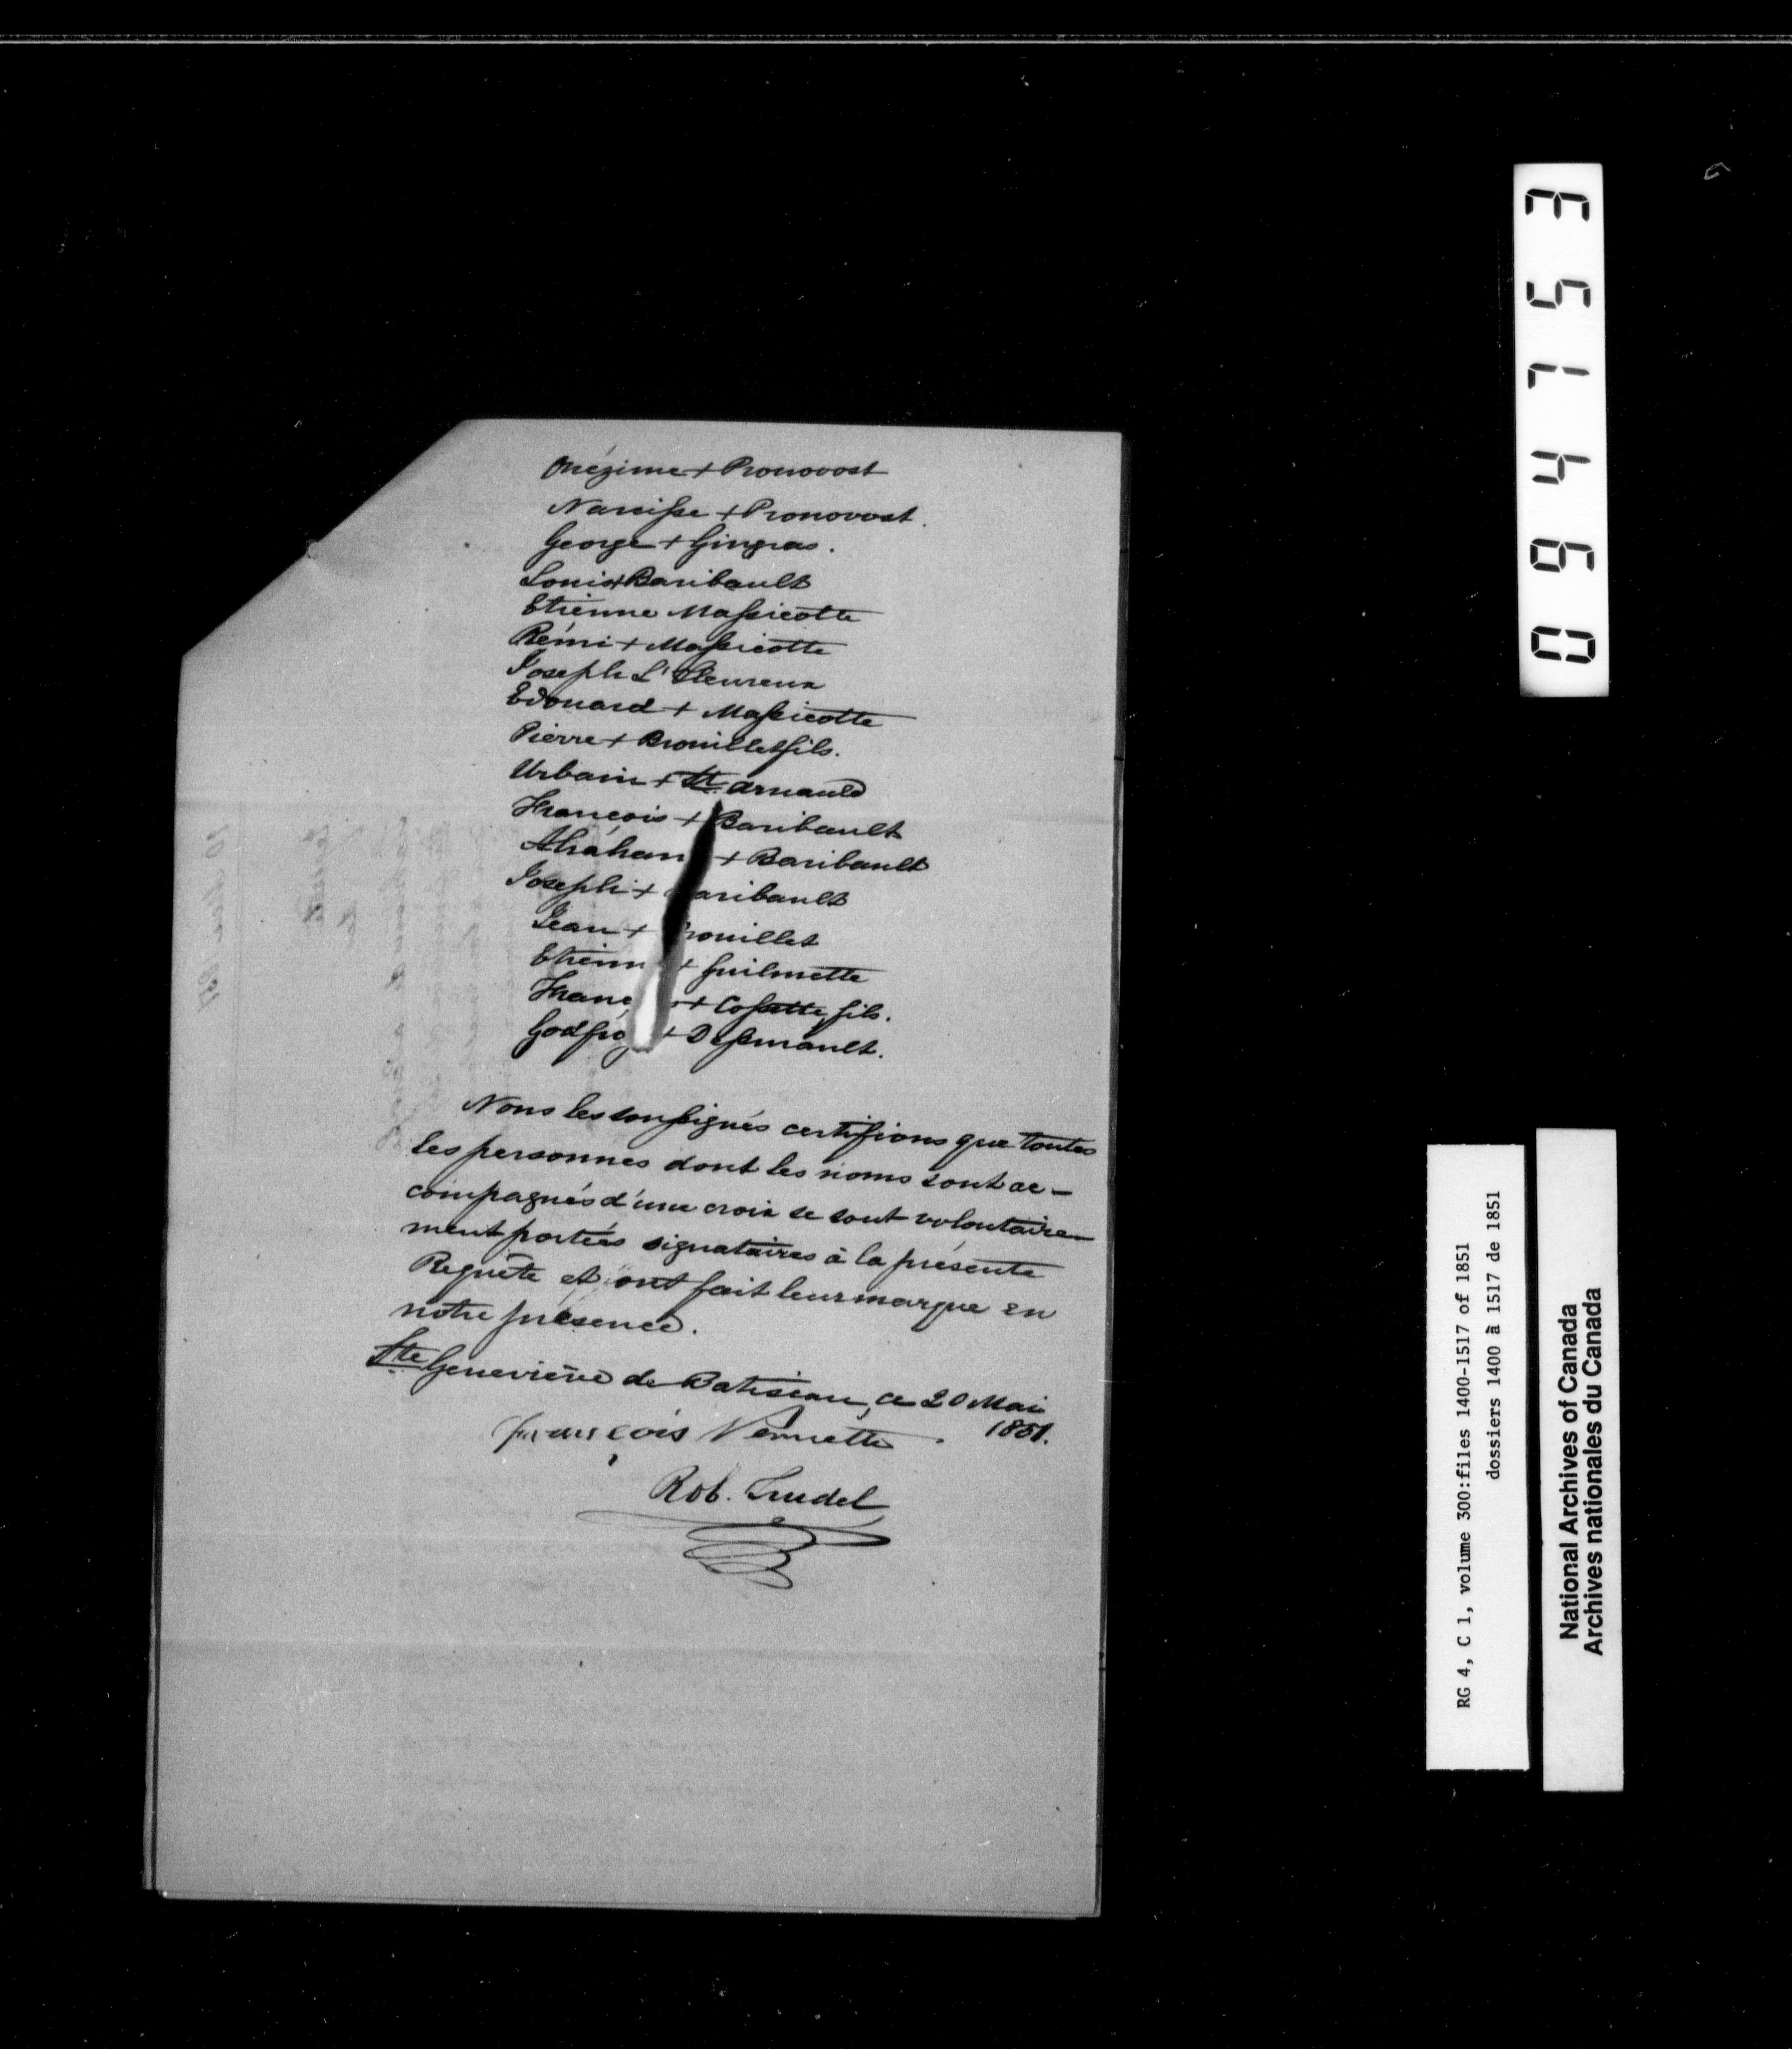 Onézime + Pronovost
Narcisse + Pronovost.
George + Gingras.
Louis + Baribault
Etienne Massicotte
Rémi + Massicotte
Joseph L'Heureux
Edouard + Massicotte
Pierre + Brouillet fils.
Urbain + St. Arnauld
François + Baribault
Abraham + Baribault
Joseph + aribault
Jean + rouillet
Etienn + Guilmette
Franç s + Cossette, fils.
Godfr + Dessurault.
Nous les soussignés certifions que toutes
les personnes dont les noms sont ac-
compagnés d'une croix se sont volontaire-
ment portées signataires à la présente
Requête et ont fait leur marque en
notre présence.
Ste Geneviève de Batiscan, ce 20 Mai
1851.
François Vennette.
Rob. Trudel
094753
RG 4, C 1, volume 300:files 1400-1517 of 1851
dossiers 1400 à 1517 de 1851
National Archives of Canada
Archives nationales du Canada